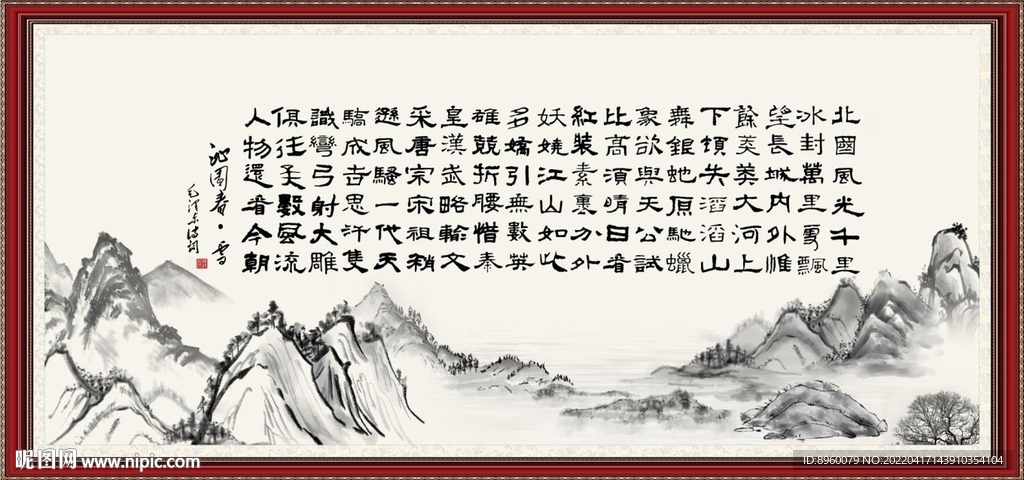 北國風光千里
冰封萬里雪飄
望長城內外惟
餘莽莽大河上
下頓失滔滔山
舞銀蛇原馳蠟
象欲與天公試
比高須晴日看
紅裝素裹分外
妖嬈江山如此
多嬌引無數英
雄競折腰惜秦
皇漢武略輸文
采唐宗宋祖稍
遜風騷一代天
驕成吉思汗隻
識彎弓射大雕
俱往矣數風流
人物還看今朝
沁園春·雪
毛澤東詩詞
昵图网 www.nipic.com
ID:8960079 NO:20220417143910354104